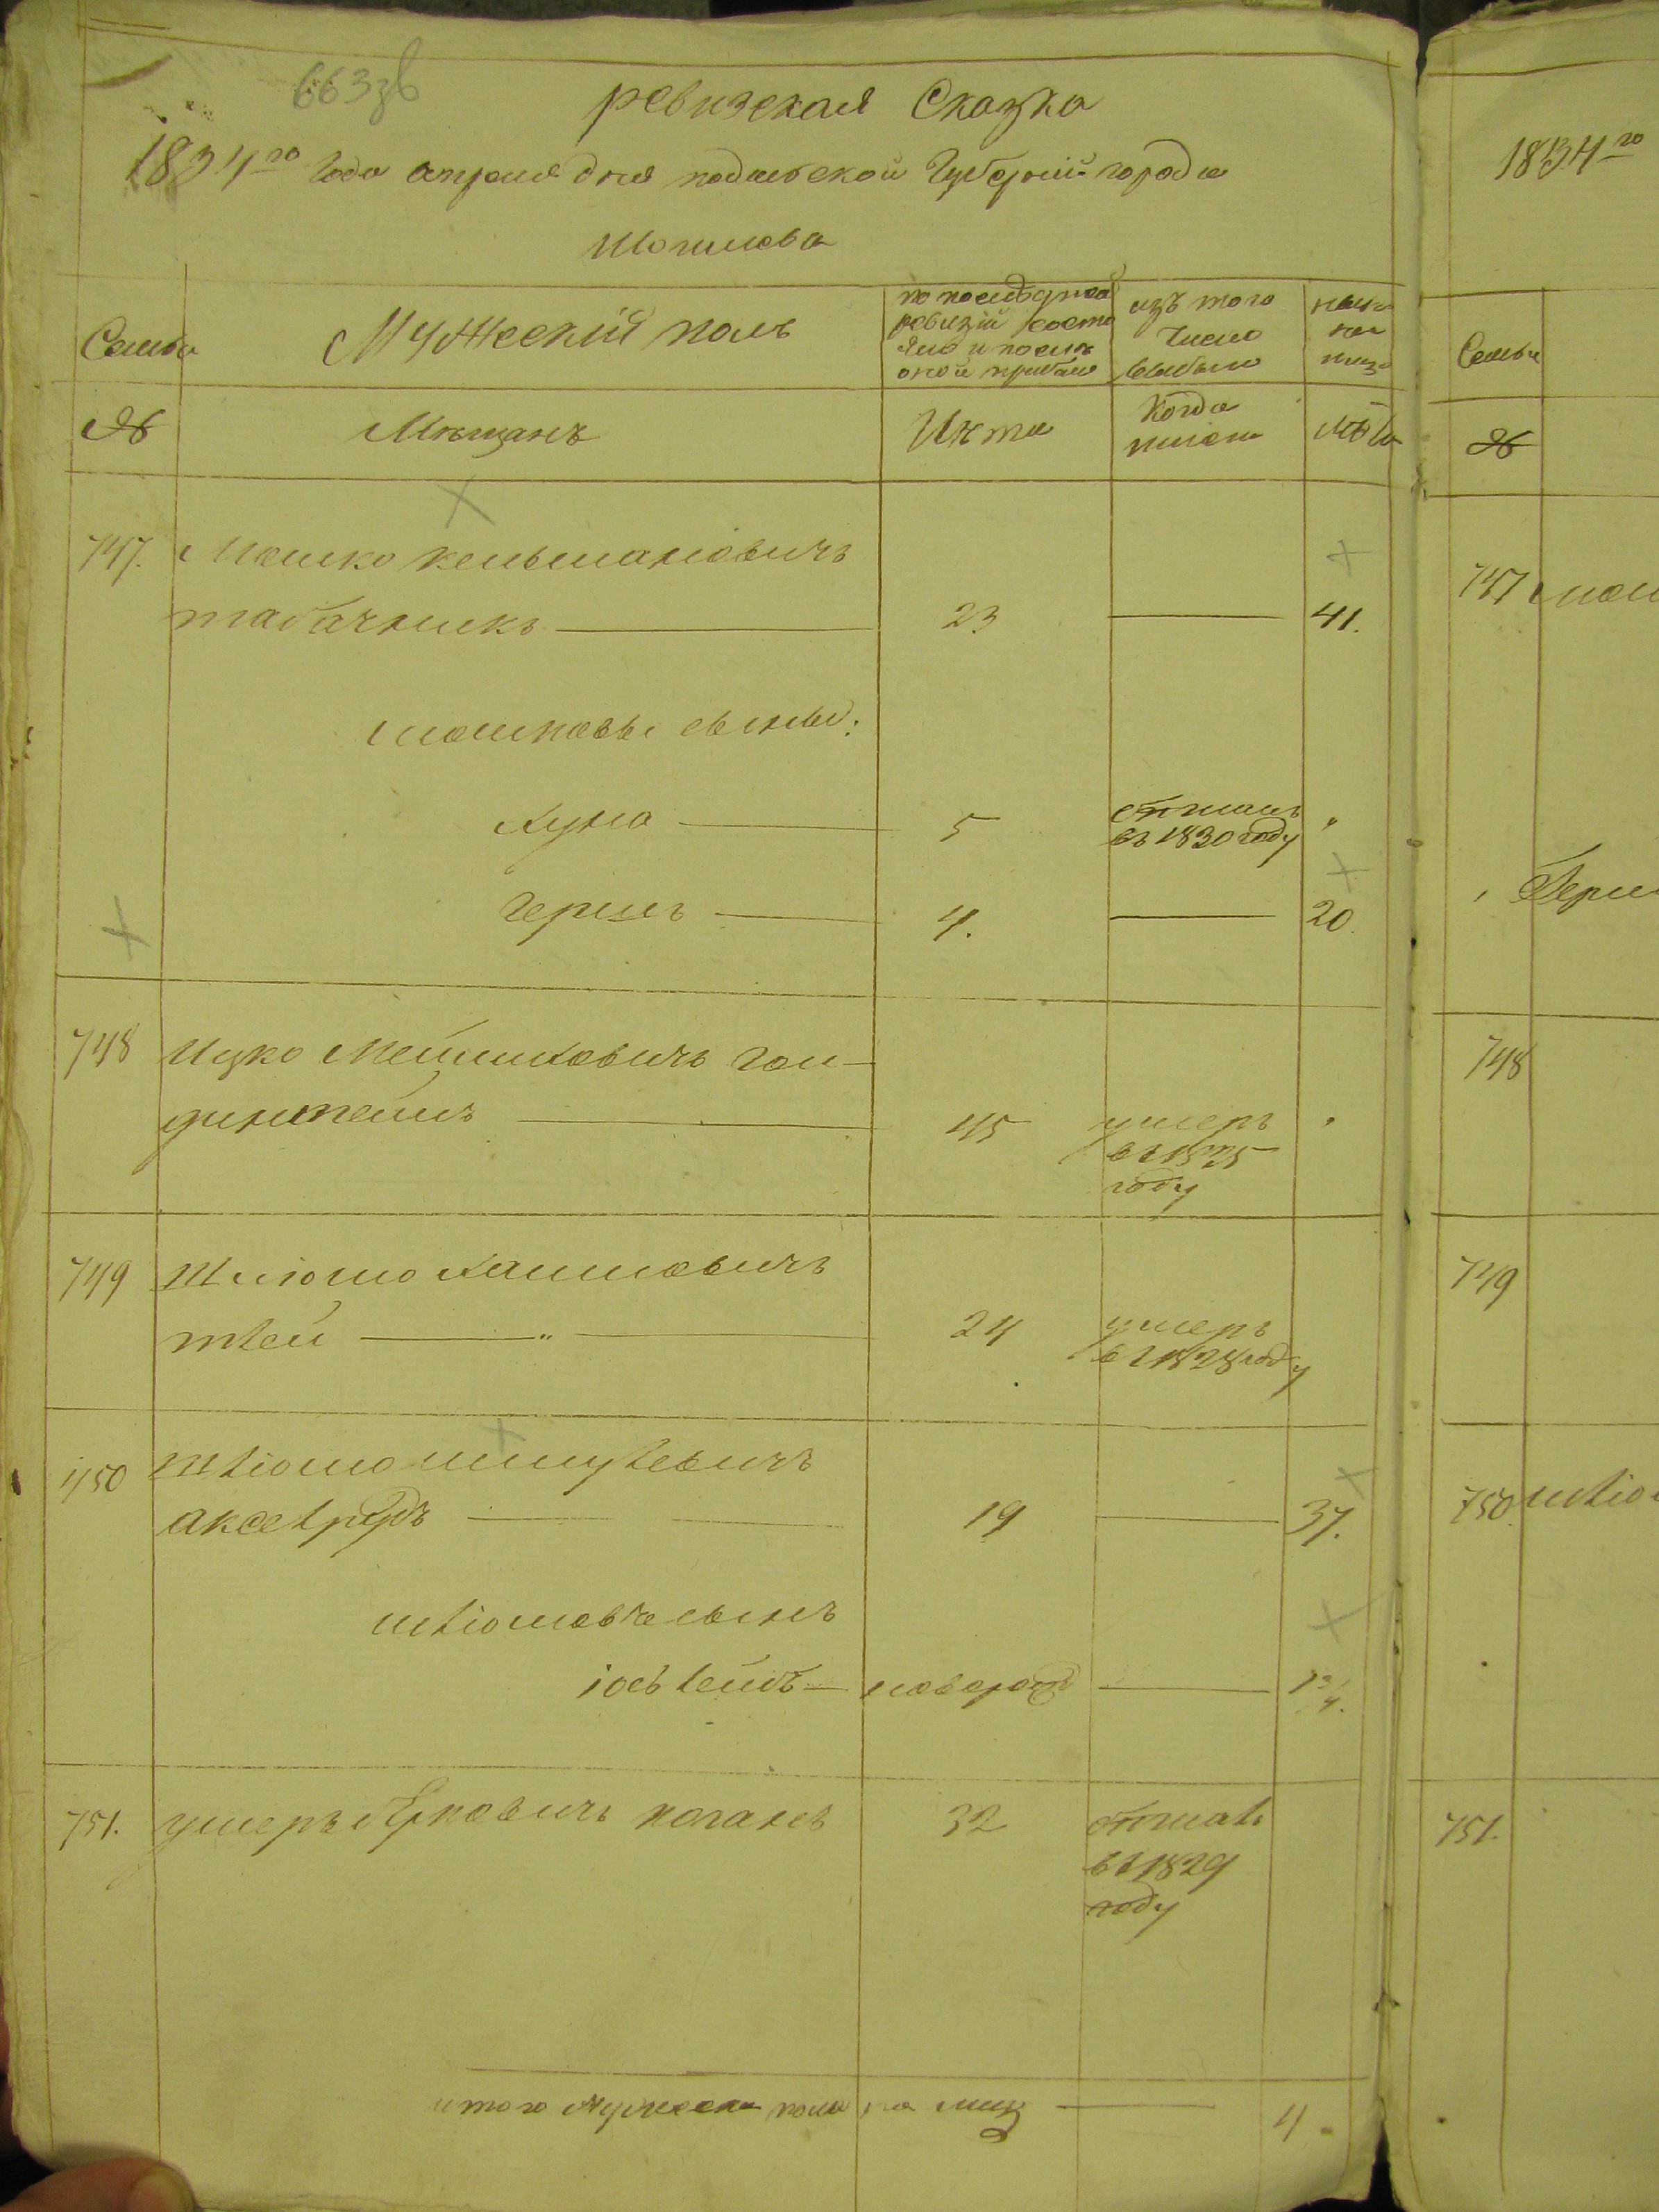 663зв
ревизская Сказка
1834го Года апреля дня подольской Губерніи города
Могилева
Семьи
Мужескій полъ
по последней ревизіи состояло и после оной прибыло
изъ того числа выбыло
ныне на лицо
№
Мещанъ
Лета
Когда именно
Лета
747. Мошко кельмановичъ
табачникъ — 23 — 41.
мошковы сыны:
Хуна — 5 отпал въ 1830 году "
Гершъ — 4. — 20.
748 Ицко Мейшковичъ гол-
динштейнъ — 45 умеръ "
въ 1825
году
749 Шлiомо Хаимовичъ
ткей — " — 24 умеръ
въ 1828 году
750
аксельрудъ — 19 — 37.
шлiомова сынъ
iось лейбъ — новорожд — 1 3/4.
751. умеръ Берковичъ коганъ 32
въ 1829
году
итого мужеска пола на лицо — 4.
1834го
Семьи
№
747
748
749
750
751.